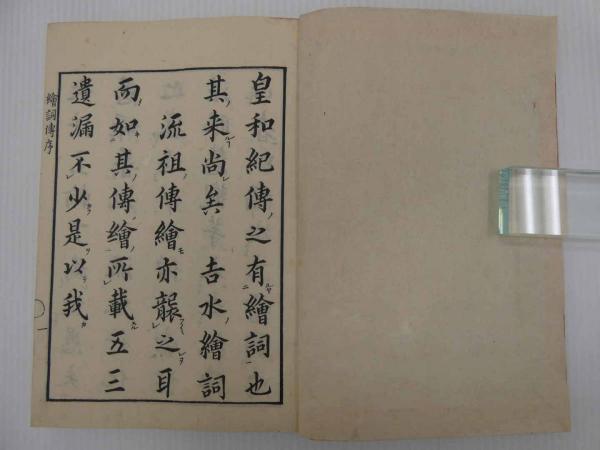 皇和紀傳之有繪詞也
其来尚矣 吉水繪詞
流祖傳繪亦襲之耳
而如其傳繪所載五三
遺漏不少是以我
繪詞傳序
一